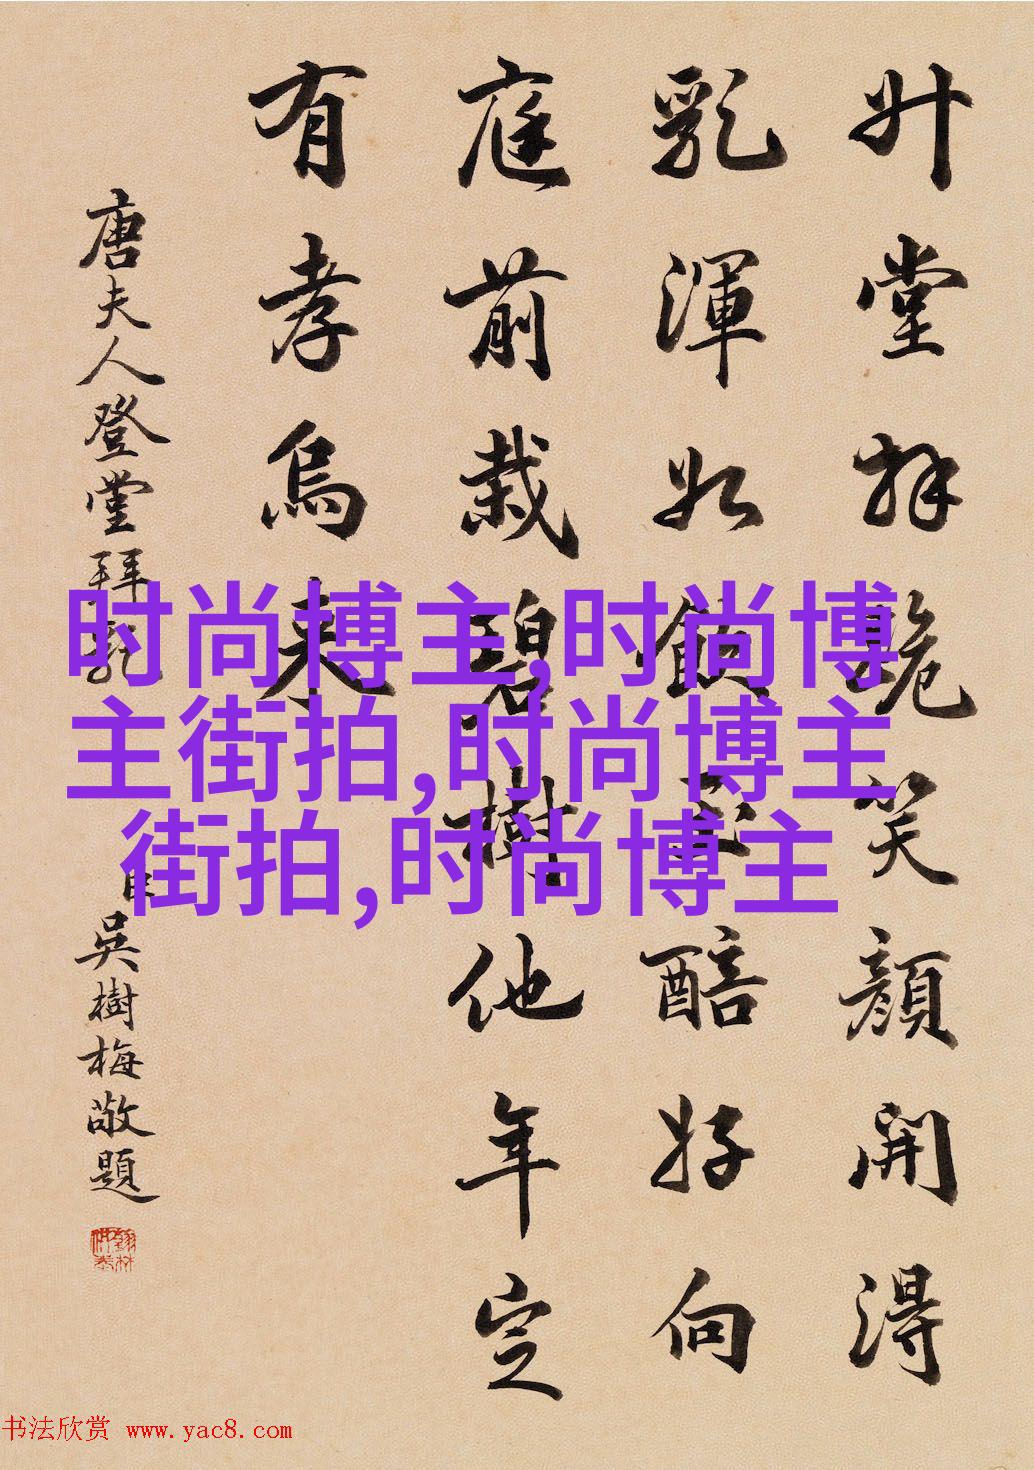 升堂拜跪笑顔開得
乳渾如飲玉醅好向
庭前栽碧樹他年定
有孝烏来
唐夫人登堂拜乳
吳樹梅敬題
时尚博主,时尚博
主街拍,时尚博主
街拍,时尚博主
书法欣赏 www.yac8.com